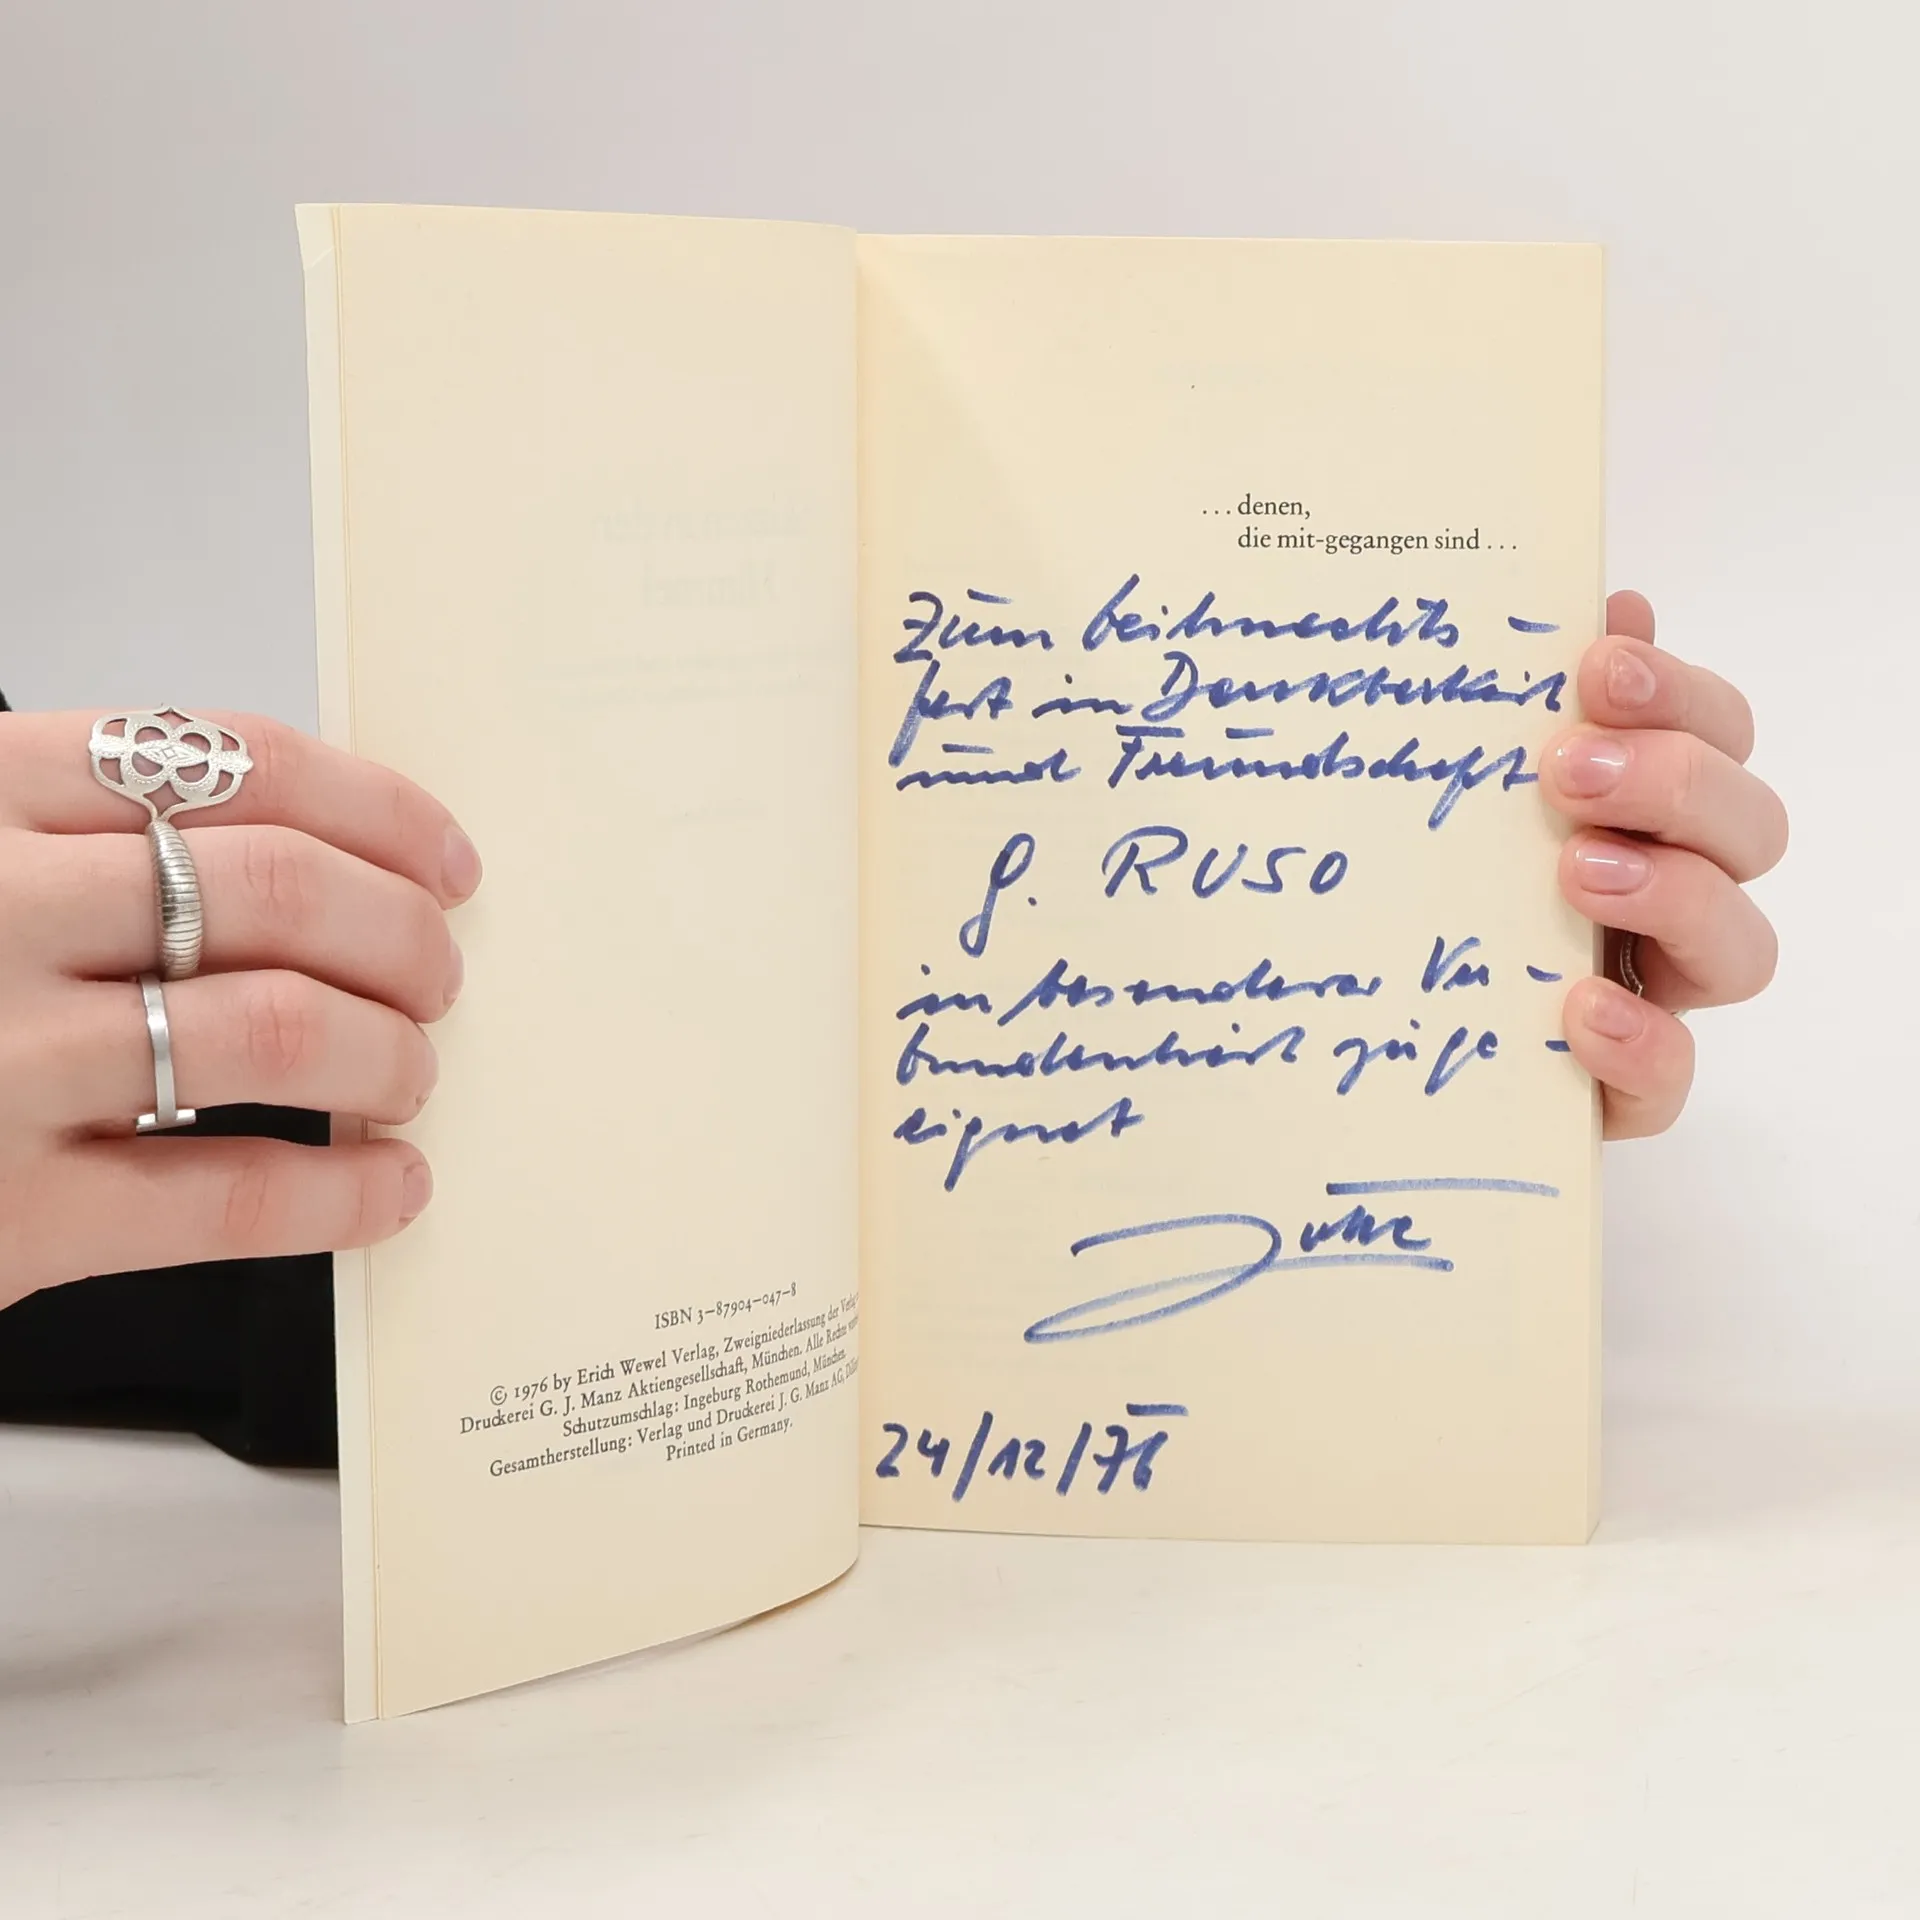 ISBN 3-87904-047-8
© 1976 by Erich Wewel Verlag, Zweigniederlassung der Verlag
Druckerei G. J. Manz Aktiengesellschaft, München. Alle Rechte
Schutzumschlag: Ingeburg Rothemund, München.
Gesamtherstellung: Verlag und Druckerei J. G. Manz AG,
Printed in Germany.
... denen,
die mit-gegangen sind ...
Zum Weihnachts -
fest in Dankbarkeit
und Freundschaft
G. RUSO
in besonderer Ver -
bundenheit zuge -
eignet
24/12/76